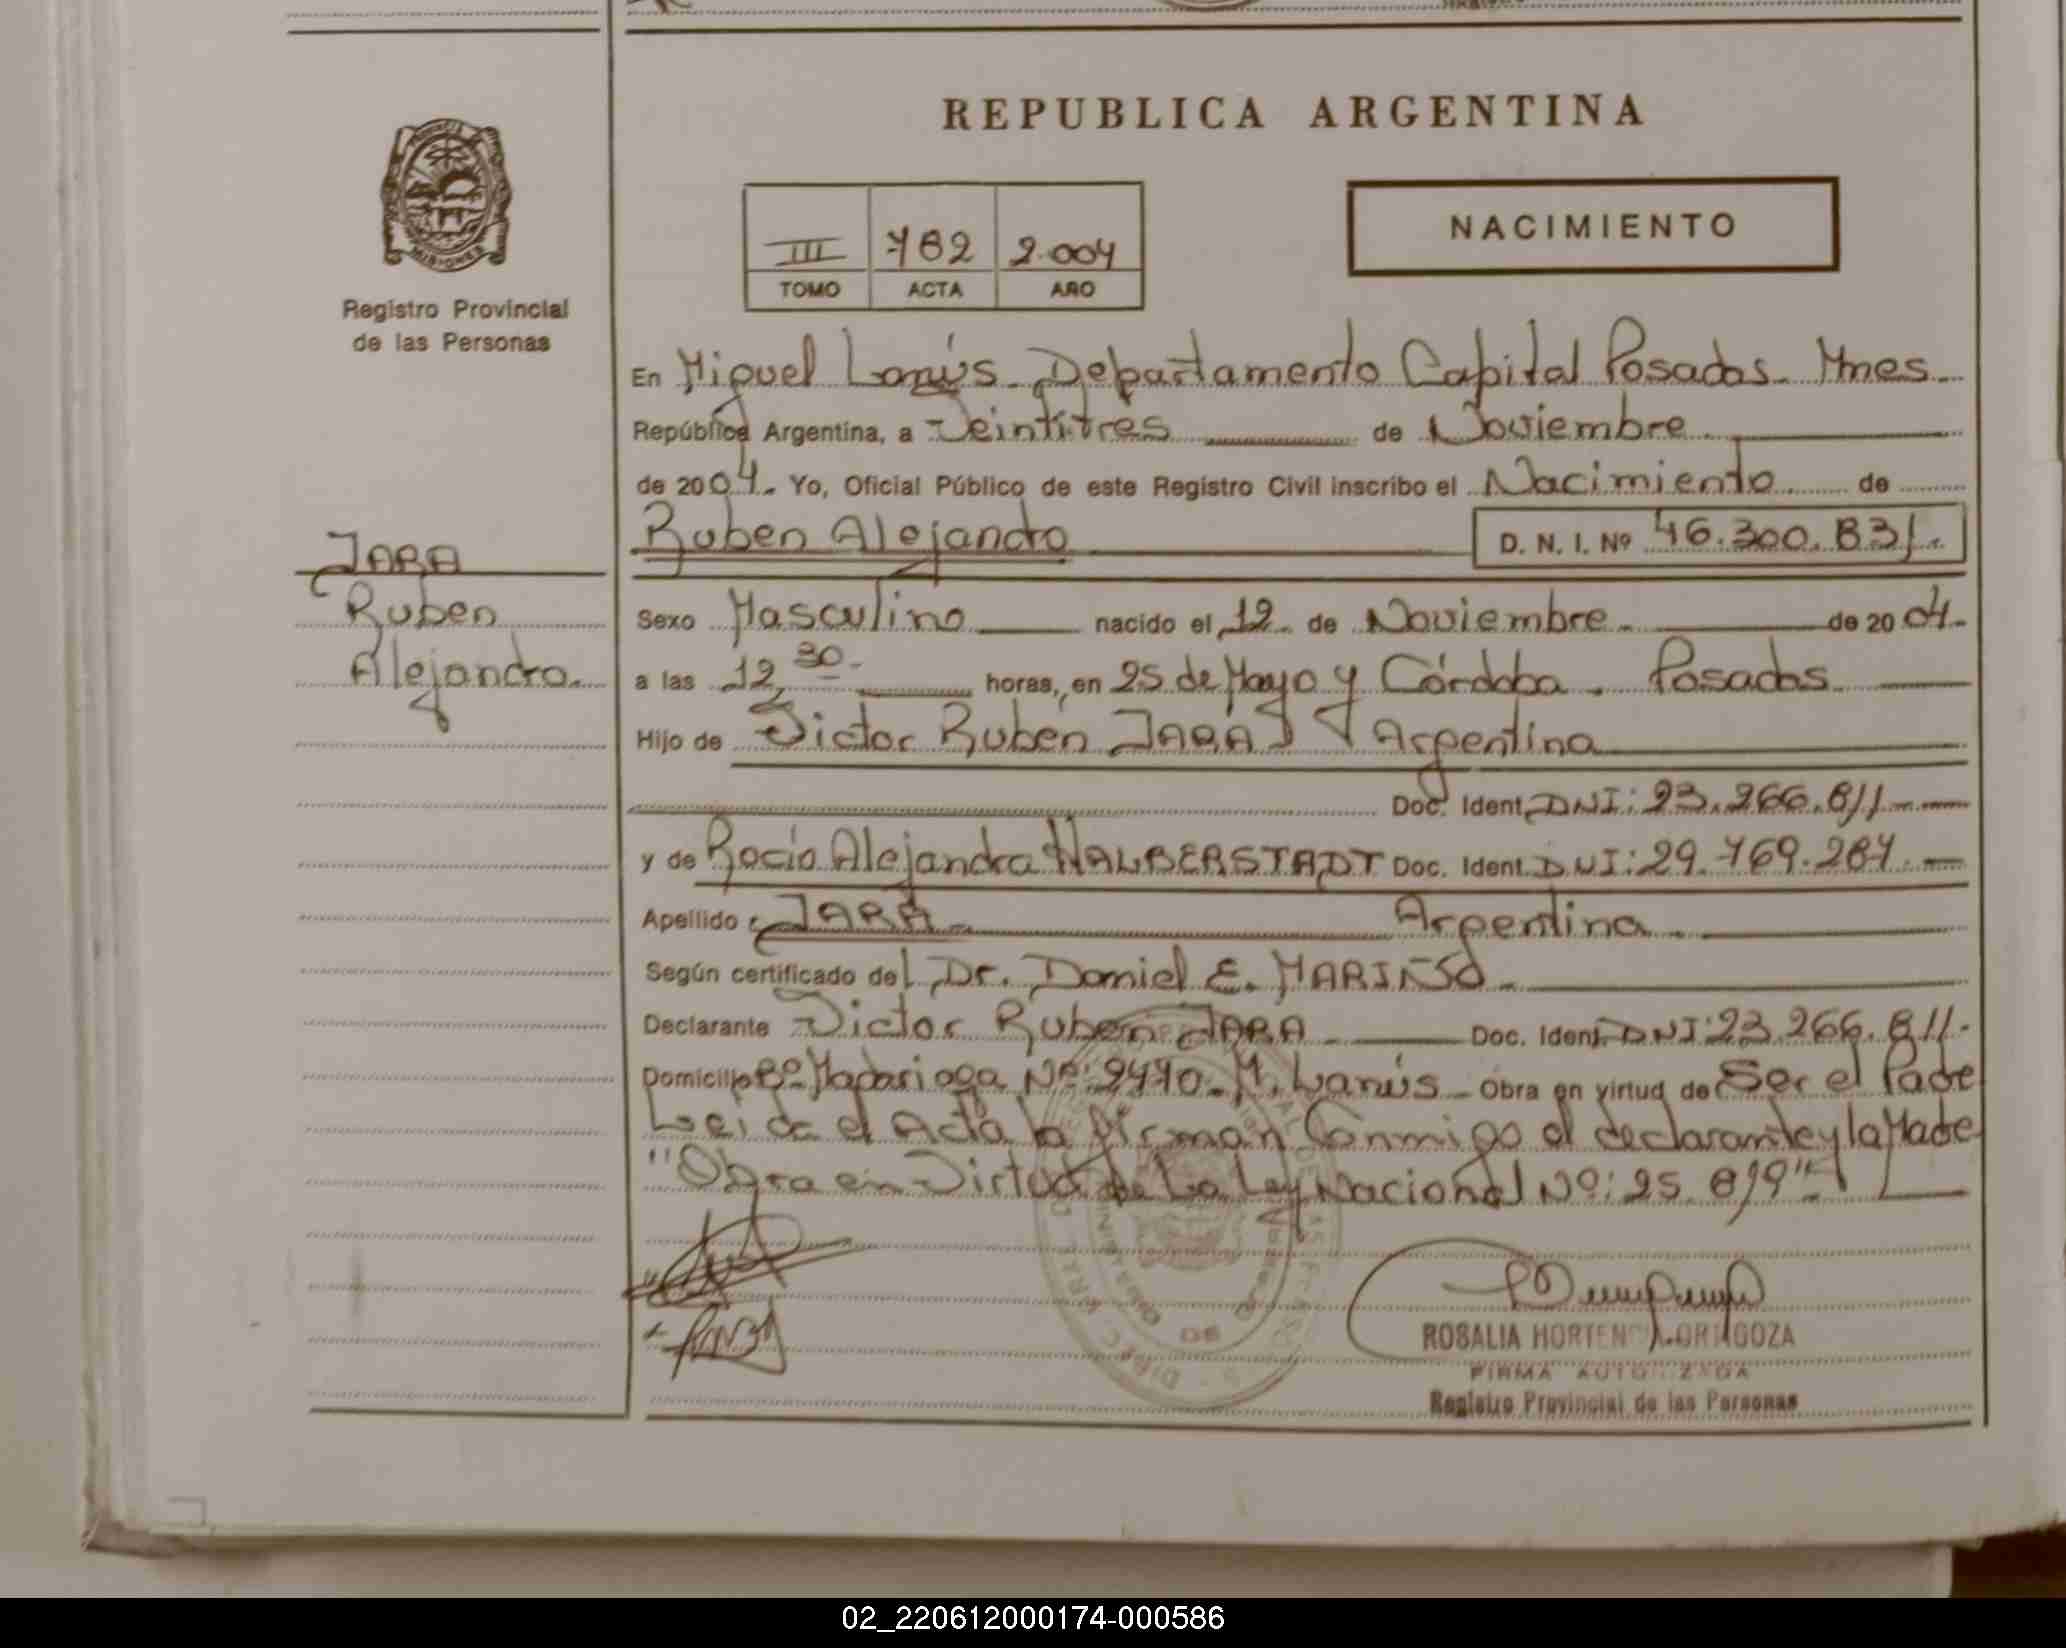 REPUBLICA ARGENTINA
NACIMIENTO
III 782 2.004
TOMO ACTA AÑO
MISIONES
Registro Provincial
de las Personas
En Miguel Lanús. Departamento Capital Posadas. Mnes.
República Argentina, a Veintitres de Noviembre.
de 2004. Yo, Oficial Público de este Registro Civil inscribo el Nacimiento de
Ruben Alejandro D. N. I. Nº 46.300.831.
JARA
Ruben
Alejandro.
Sexo Masculino nacido el 12. de Noviembre. de 2004.
a las 12,30. horas, en 25 de Mayo y Córdoba. Posadas
Hijo de Victor Rubén JARA Argentina
Doc. Ident. DNI: 23.266.811.
y de Rocío Alejandra HALBERSTADT Doc. Ident. DNI: 29.769.287.
Apellido: JARA. Argentina.
Según certificado del Dr. Daniel E. MARIÑO.
Declarante Victor Ruben JARA. Doc. Ident. DNI: 23.266.811.
Domicilio Bº Madariaga Nº: 2770. M. Lanús. Obra en virtud de Ser el Padre
Leída el Acta la firman Conmigo el declarante y la Madre
"Obra en Virtud de La Ley Nacional Nº: 25.819"
ROSALIA HORTEN
FIRMA AUTORIZADA
Registro Provincial de las Personas
02_220612000174-000586